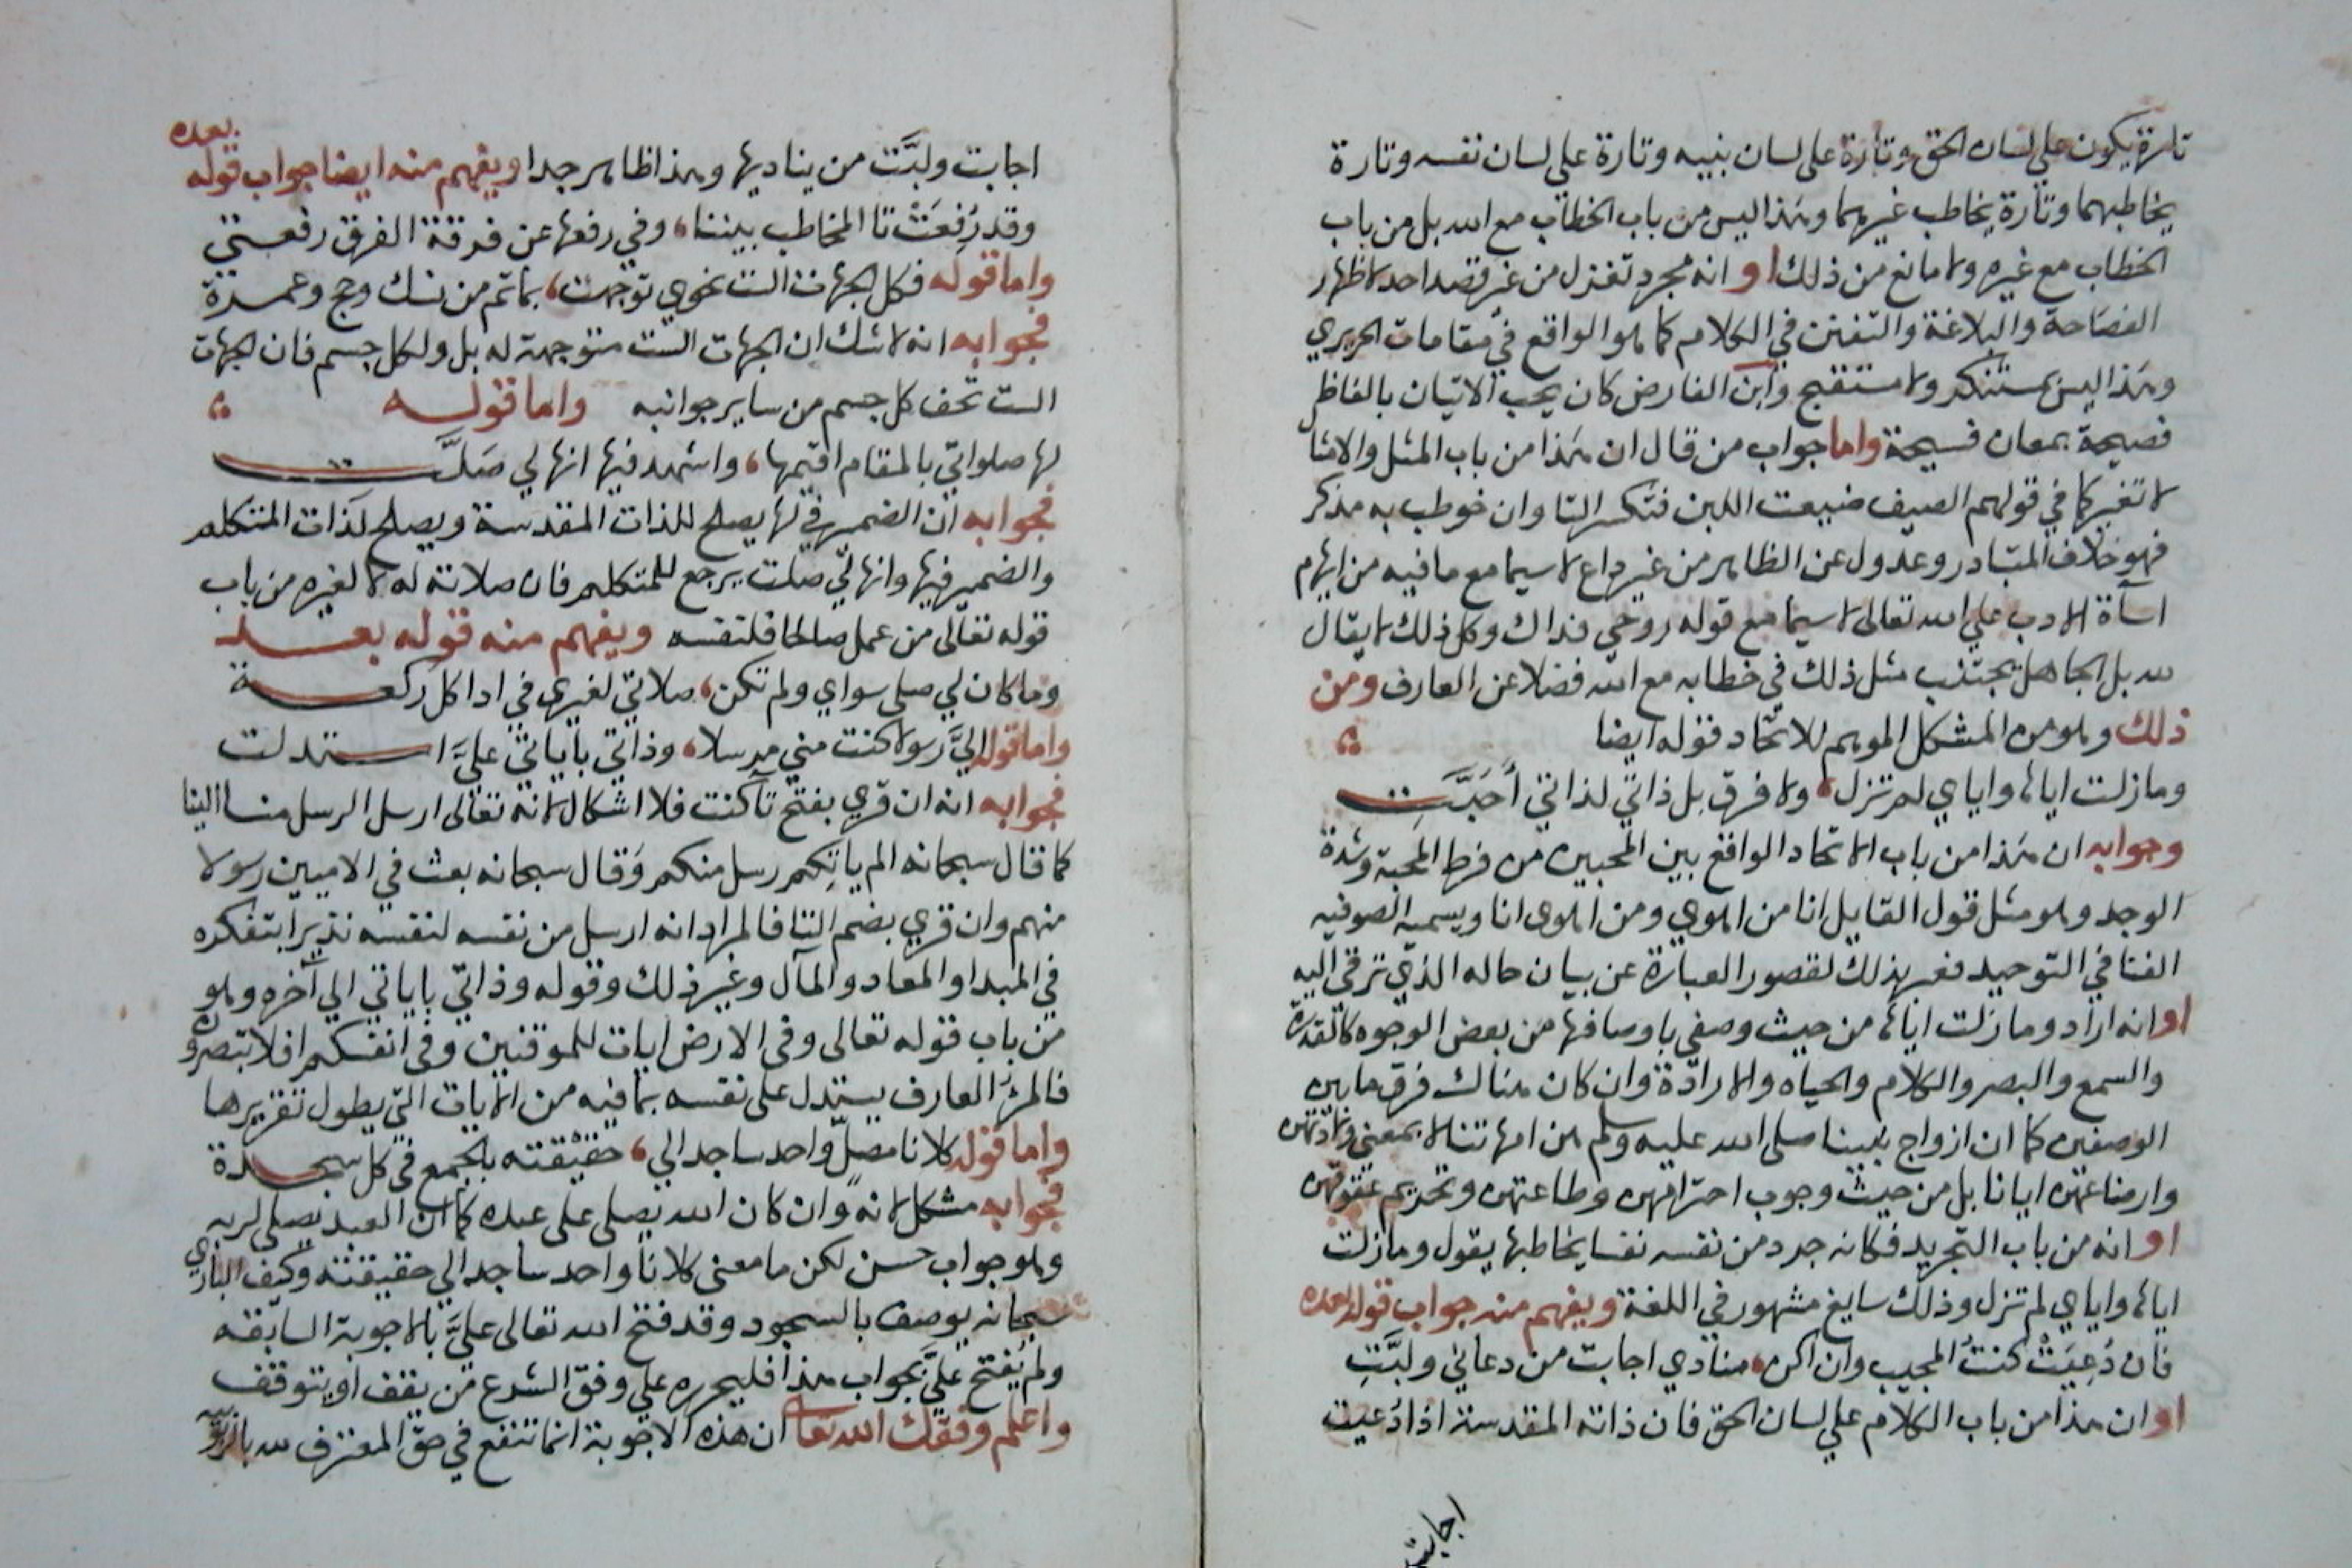 تارة يكون علي لسان الحق وتارة على لسان نبيه وتارة علي لسان نفسه وتارة
يخاطبهما وتارة يخاطب غيرهما وهذا ليس من باب الخطاب مع الله بل من باب
الخطاب مع غيره ولا مانع من ذلك او انه مجرد تغزل من غير قصد احد لاظهار
الفصاحة والبلاغة والتفنن في الكلام كما هو الواقع في مقامات الحريري
وهذا ليس بمستنكر ولا مستقبح وابن الفارض كان يحب الاتيان بالفاظ
فصيحة بمعان فسيحة واما جواب من قال ان هذا من باب المثل والامثا
لا تغير كما في قولهم الصيف ضيعت اللبن فتكسر التا وان خوطب به مذكر
فهو خلاف المتبادر وعدول عن الظاهر من غير داع لا سيما مع ما فيه من ايهام
اسآة الادب علي الله تعالى لا سيما مع قوله روحي فداك وكل ذلك لا يقال
لله بل الجاهل يجتنب مثل ذلك في خطابه مع الله فضلا عن العارف ومن
ذلك وهو من المشكل الموهم للاتحاد قوله ايضا
وما زلت اياها واياي لم تزل، ولا فرق بل ذاتي لذاتي أحَبَّتِ
وجوابه ان هذا من باب الاتحاد الواقع بين المحبين من فرط المحبة وشدة
الوجد وهو مثل قول القايل انا من اهوي ومن اهوى انا ويسميه الصوفيه
الفنا في التوحيد فعبر بذلك لقصور العبارة عن بيان حاله الذي ترقى اليه
او انه اراد وما زلت اياها من حيث وصفي باوصافها من بعض الوجوه كالقدرة
والسمع والبصر والكلام والحياه والارادة وان كان هناك فرق ما بين
الوصفين كما ان ازواج نبينا صلى الله عليه وسلم هن امهاتنا لا بمعني ولادتهن
وارضاعهن ايانا بل من حيث وجوب احترامهن وطاعتهن وتحريم عقوقهن
او انه من باب التجريد فكانه جرد من نفسه نفسا يخاطبها يقول وما زلت
اياها واياي لم تزل وذلك سايغ مشهور في اللغة ويفهم منه جواب قوله بعده
فان دُعِيَتْ كنتُ المجيب وان اكن، منادي اجابت من دعاني ولبَّتِ
او ان هذا من باب الكلام علي لسان الحق فان ذاته المقدسة اذا دُعيت
اجابت
اجابت ولبَّت من يناديها وهذا ظاهر جدا ويفهم منه ايضا جواب قوله بعده
وقد رُفِعَتْ تا المخاطب بيننا، وفي رفعها عن فرقة الفرق رفعتي
واما قوله فكل الجهات الست نحوي توجهت، بما تم من نسك وحج وعمرة
فجوابه انه لا شك ان الجهات الست متوجهة له بل ولكل جسم فان الجهات
الست تحف كل جسم من ساير جوانبه واما قوله
لها صلواتي بالمقام اقيمها، واشهد فيها انها لي صَلَّتِ
فجوابه ان الضمير في لها يصلح للذات المقدسة ويصلح لذات المتكلم
والضمير فيها وانها لي صلت يرجع للمتكلم فان صلاته له لا لغيره من باب
قوله تعالى من عمل صالحا فلنفسه ويفهم منه قوله بعد
وما كان لي صلى سواي ولم تكن، صلاتي لغيري في ادا كل ركعة
واما قوله اليَّ رسولا كنت مني مرسلا، وذاتي باياتي عليَّ استدلت
فجوابه انه ان قري بفتح تآ كنت فلا اشكال لانه تعالى ارسل الرسل منا الينا
كما قال سبحانه الم ياتكم رسل منكم وقال سبحانه بعث في الاميين رسولا
منهم وان قري بضم التا فالمراد انه ارسل من نفسه لنفسه نذيرا بتفكره
في المبدا والمعاد والمآل وغير ذلك وقوله وذاتي باياتي الي آخره وهو
من باب قوله تعالى وفي الارض ايات للموقنين وفي انفسكم افلا تبصرون
فالمرؤ العارف يستدل على نفسه بما فيه من الايات التي يطول تقريرها
واما قوله كلانا مصلّ واحد ساجد الي، حقيقته بالجمع في كل سجدة
فجوابه مشكل لانه وان كان الله يصلى على عبده كما ان العبد يصلي لربه
وهو جواب حسن لكن ما معنى كلانا واحد ساجد الي حقيقته وكيف الباري
سبحانه يوصف بالسجود وقد فتح الله تعالى عليَّ بالاجوبة السابقه
ولم يُفتح عليَّ بجواب هذا فليحرره علي وفق الشرع من يقف او يتوقف
واعلم وفقك الله تعا ان هذه الاجوبة انما تنفع في حق المعترف لله